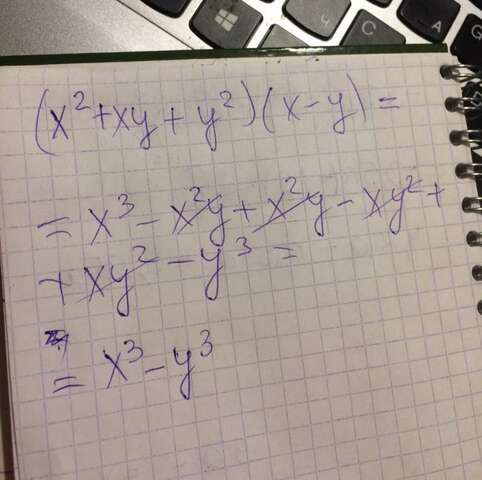 (x²+xy+y²)(x-y)=
=x³-x²y+x²y-xy²+
+xy²-y³=
=x³-y³